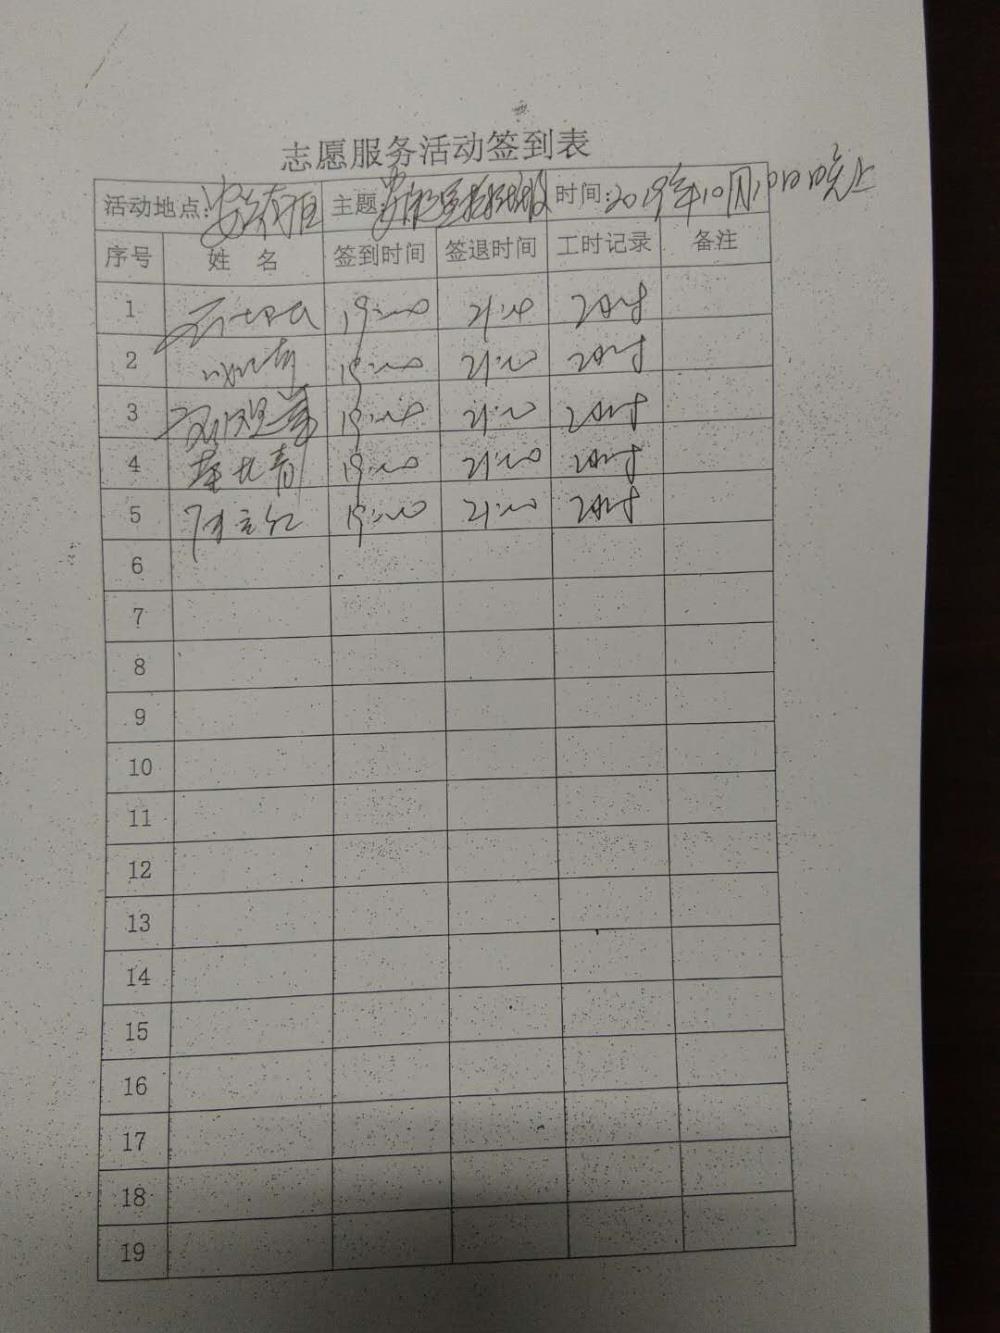 志愿服务活动签到表
活动地点: 主题: 时间:2019年10月10日晚上
序号 姓 名 签到时间 签退时间 工时记录 备注
1 19:00 21:00 2小时
2 19:00 21:00 2小时
3 19:00 21:00 2小时
4 19:00 21:00 2小时
5 19:00 21:00 2小时
6
7
8
9
10
11
12
13
14
15
16
17
18
19